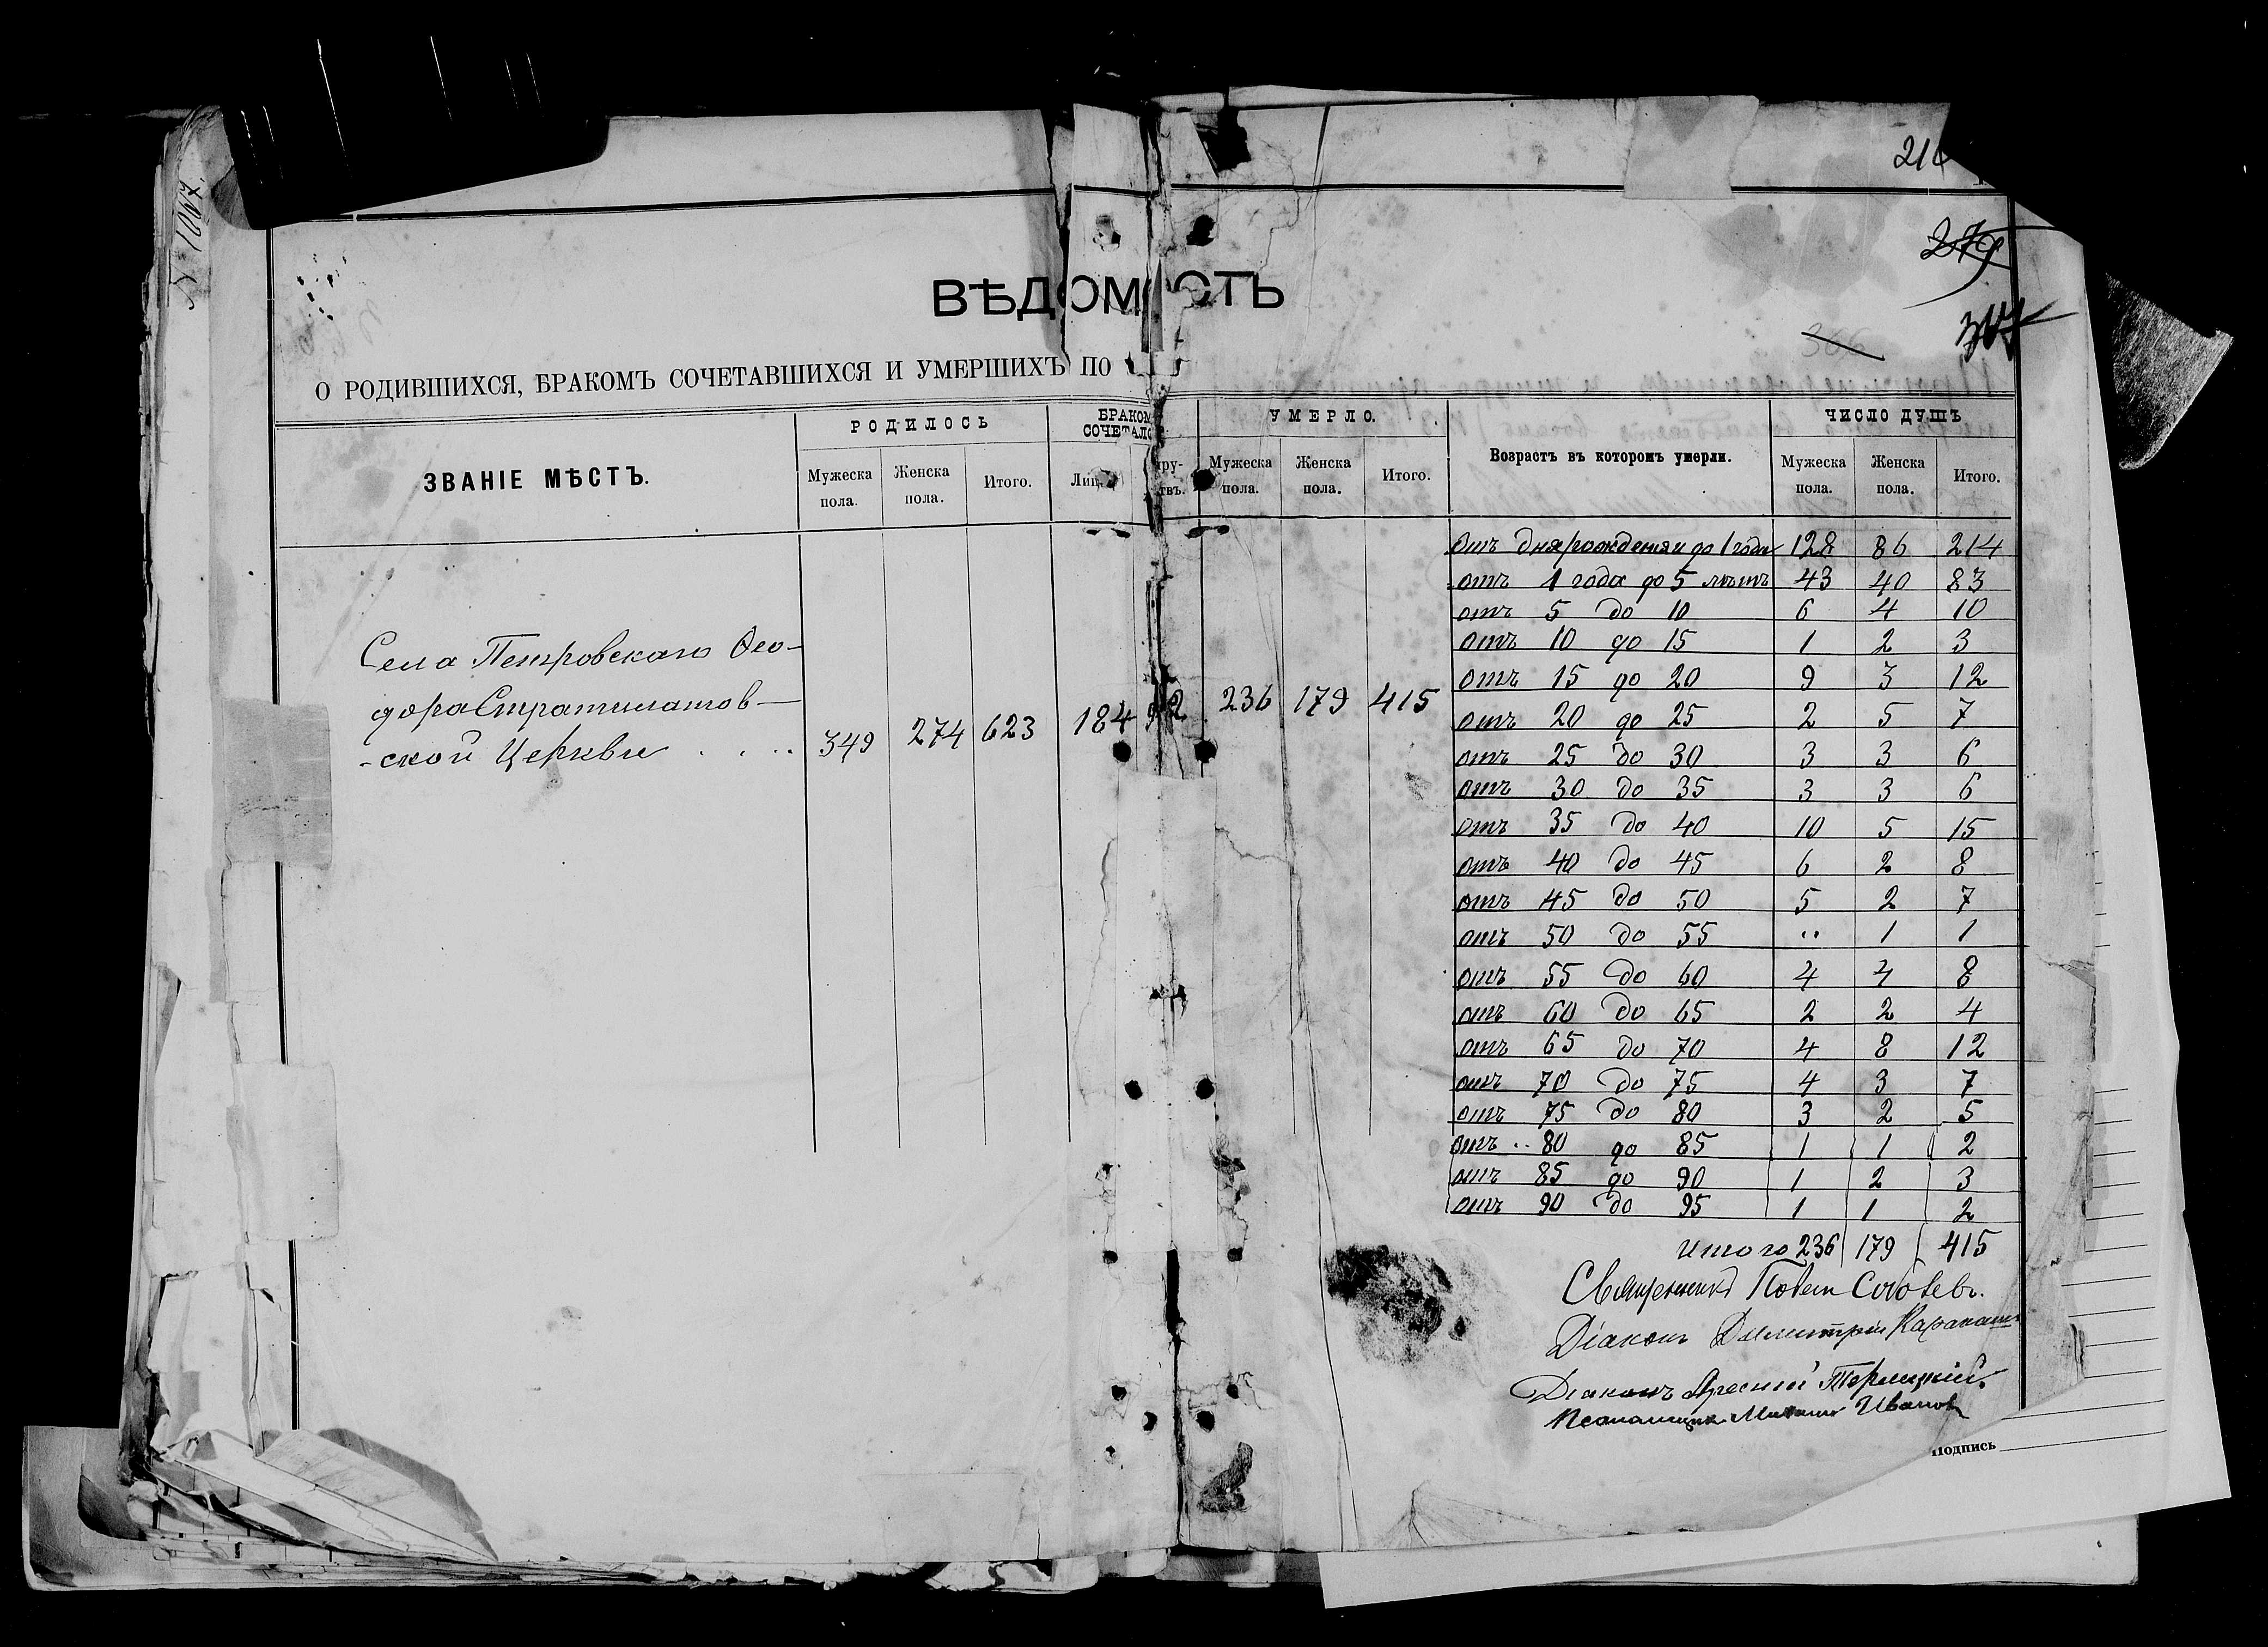 № 1007.
ВѢДОМОСТЬ
О РОДИВШИХСЯ, БРАКОМЪ СОЧЕТАВШИХСЯ И УМЕРШИХЪ ПО
ЗВАНІЕ МѢСТЪ.
РОДИЛОСЬ
Мужеска пола.
Женска пола.
Итого.
УМЕРЛО.
Мужеска пола.
Женска пола.
Итого.
Возрастъ въ которомъ умерли.
ЧИСЛО ДУШЪ
Мужеска пола.
Женска пола.
Итого.
Села Петровскаго Ѳео-
дора Стратилатов-
-ской Церкви . . . . 349 274 623 184 92 236 179 415
Отъ дня рожденія до 1 года 128 86 214
отъ 1 года до 5 лѣтъ 43 40 83
отъ 5 до 10 6 4 10
отъ 10 до 15 1 2 3
отъ 15 до 20 9 3 12
отъ 20 до 25 2 5 7
отъ 25 до 30 3 3 6
отъ 30 до 35 3 3 6
отъ 35 до 40 10 5 15
отъ 40 до 45 6 2 8
отъ 45 до 50 5 2 7
отъ 50 до 55 „ 1 1
отъ 55 до 60 4 4 8
отъ 60 до 65 2 2 4
отъ 65 до 70 4 8 12
отъ 70 до 75 4 3 7
отъ 75 до 80 3 2 5
отъ 80 до 85 1 1 2
отъ 85 до 90 1 2 3
отъ 90 до 95 1 1 2
Итого 236 179 415
Священникъ
Діаконъ Димитрій
Діаконъ
Псаломщикъ Михаилъ Ивановъ
Подпись
279
366